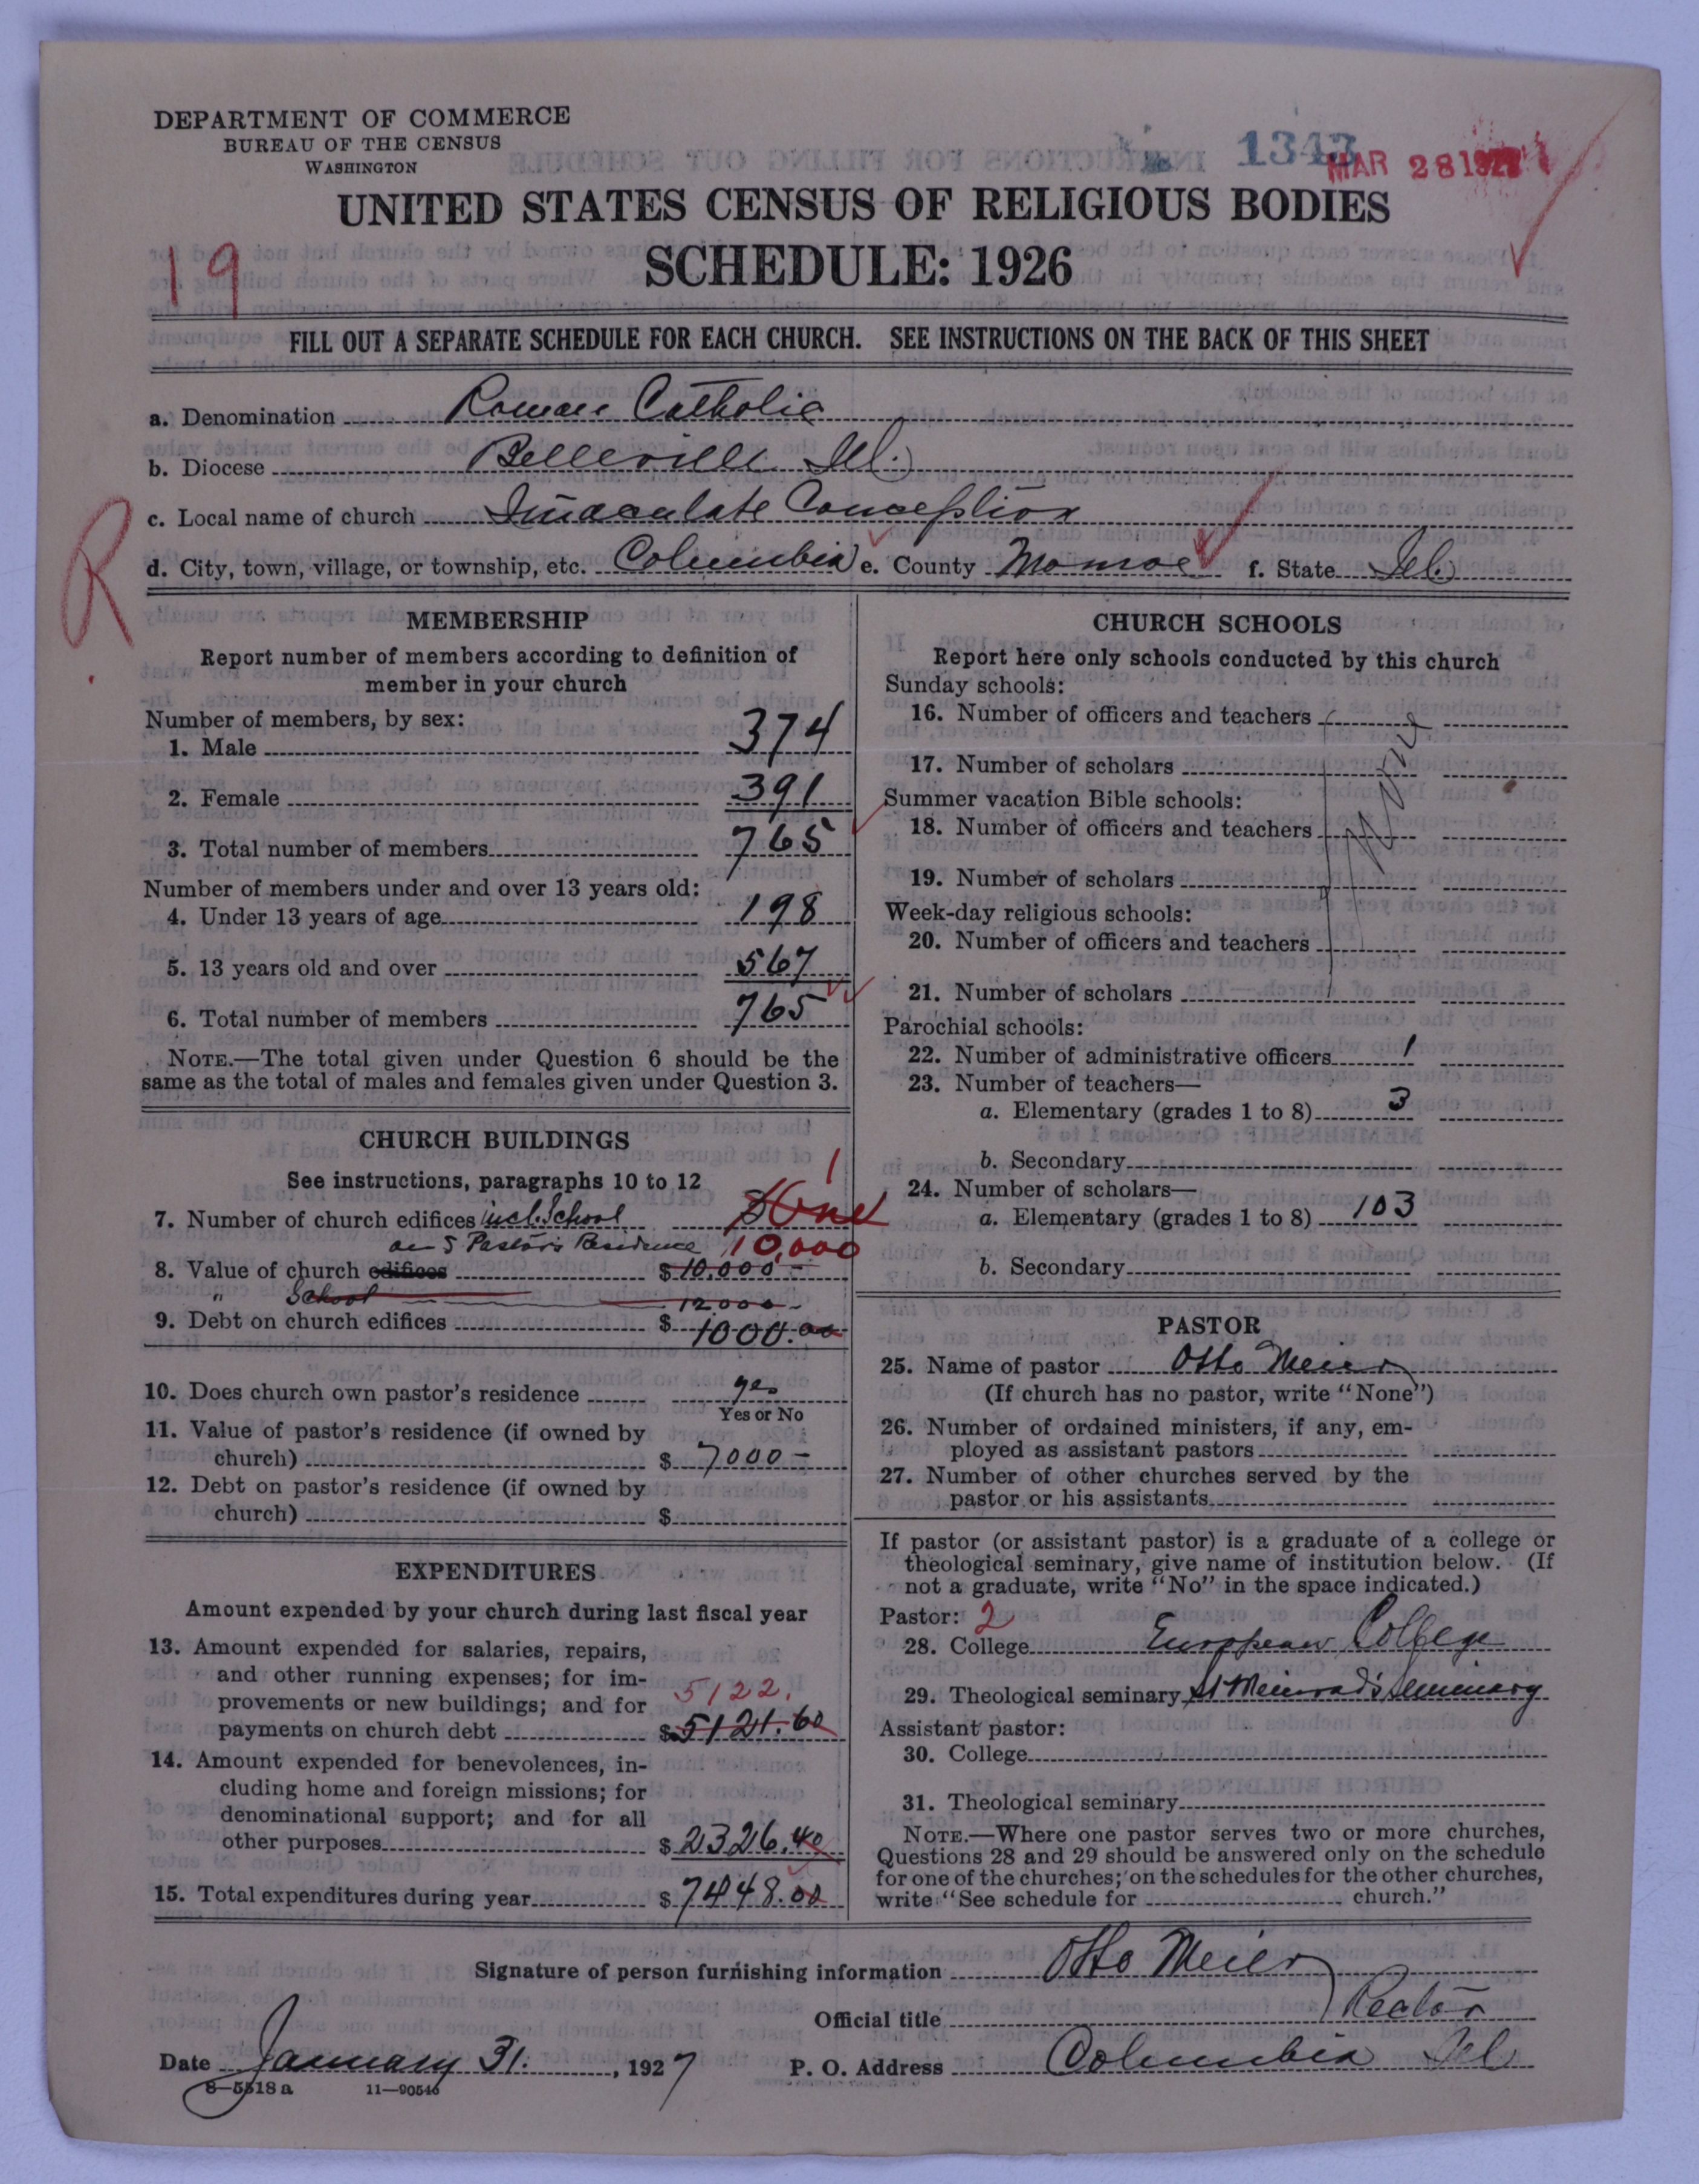 DEPARTMENT OF COMMERCE
BUREAU OF THE CENSUS
WASHINGTON
1343
MAR 28 1927
UNITED STATES CENSUS OF RELIGIOUS BODIES
19
SCHEDULE: 1926
FILL OUT A SEPARATE SCHEDULE FOR EACH CHURCH. SEE INSTRUCTIONS ON THE BACK OF THIS SHEET
a. Denomination Roman Catholic
b. Diocese Belleville Ill.
c. Local name of church Immaculate Conception
R
d. City, town, village, or township, etc. Columbia e. County Monroe f. State Ill.
MEMBERSHIP
Report number of members according to definition of
member in your church
Number of members, by sex:
1. Male 374
2. Female 391
3. Total number of members 765
Number of members under and over 13 years old:
4. Under 13 years of age 198
5. 13 years old and over 567
6. Total number of members 765
NOTE.—The total given under Question 6 should be the
same as the total of males and females given under Question 3.
CHURCH BUILDINGS
See instructions, paragraphs 10 to 12
1
7. Number of church edifices incl. School One
Pastor's Residence 10,000
8. Value of church edifices $ 10.000 –
" School 12000 –
9. Debt on church edifices $ 1000.00
10. Does church own pastor's residence yes
Yes or No
11. Value of pastor's residence (if owned by
church) $ 7000 –
12. Debt on pastor's residence (if owned by
church) $
EXPENDITURES
Amount expended by your church during last fiscal year
13. Amount expended for salaries, repairs,
and other running expenses; for im-
provements or new buildings; and for 5122.
payments on church debt $ 5121.60
14. Amount expended for benevolences, in-
cluding home and foreign missions; for
denominational support; and for all
other purposes $ 2326.40
15. Total expenditures during year $ 7448.00
CHURCH SCHOOLS
Report here only schools conducted by this church
Sunday schools:
16. Number of officers and teachers
17. Number of scholars
Summer vacation Bible schools:
18. Number of officers and teachers
None
19. Number of scholars
Week-day religious schools:
20. Number of officers and teachers
21. Number of scholars
Parochial schools:
22. Number of administrative officers 1
23. Number of teachers—
a. Elementary (grades 1 to 8) 3
b. Secondary
24. Number of scholars—
a. Elementary (grades 1 to 8) 103
b. Secondary
PASTOR
25. Name of pastor Otto Meier
(If church has no pastor, write "None")
26. Number of ordained ministers, if any, em-
ployed as assistant pastors
27. Number of other churches served by the
pastor or his assistants
If pastor (or assistant pastor) is a graduate of a college or
theological seminary, give name of institution below. (If
not a graduate, write "No" in the space indicated.)
Pastor: 2
28. College European College
29. Theological seminary St Meinrad's Seminary
Assistant pastor:
30. College
31. Theological seminary
NOTE.—Where one pastor serves two or more churches,
Questions 28 and 29 should be answered only on the schedule
for one of the churches; on the schedules for the other churches,
write "See schedule for church."
Signature of person furnishing information Otto Meier
Official title Rector
Date January 31. , 1927 P. O. Address Columbia Ill
8—5518 a 11—90546